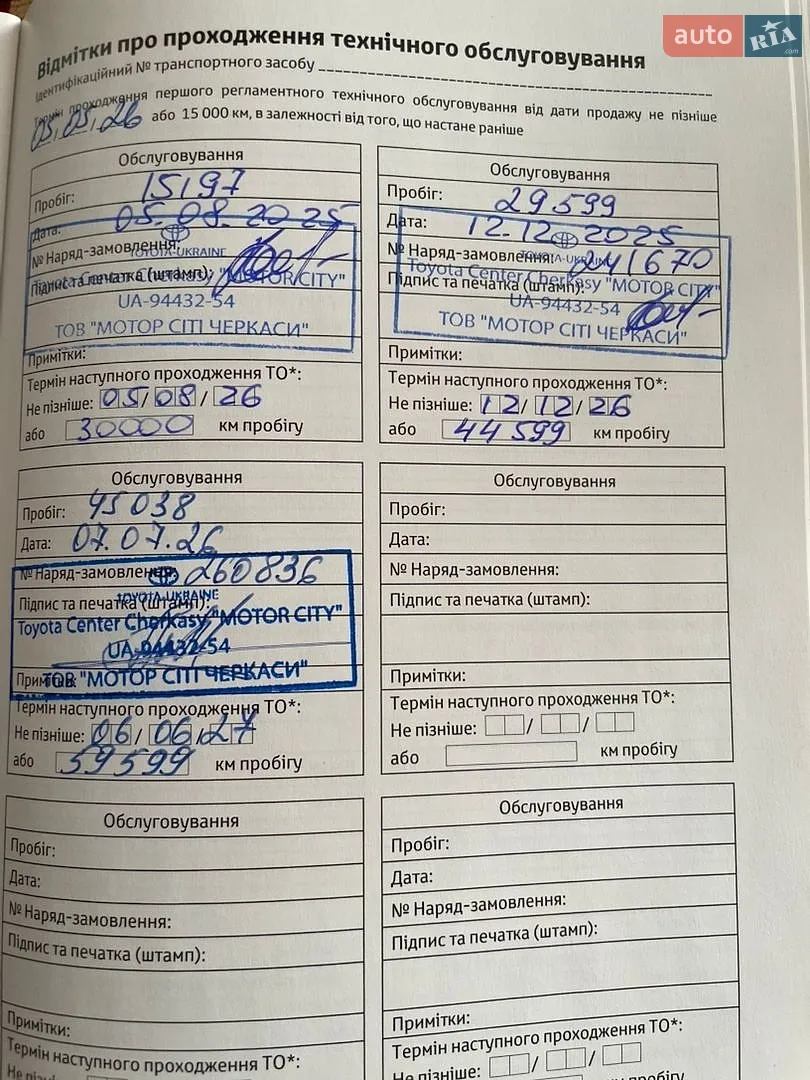 auto RIA.com
Відмітки про проходження технічного обслуговування
Ідентифікаційний № транспортного засобу
Термін проходження першого регламентного технічного обслуговування від дати продажу не пізніше
05.05.26 або 15 000 км, в залежності від того, що настане раніше
Обслуговування
Пробіг: 15197
Дата: 05.08.2025
№ Наряд-замовлення:
TOYOTA-UKRAINE
Підпис та печатка (штамп):
Toyota Center Cherkasy "MOTOR CITY"
UA-94432-54
ТОВ "МОТОР СІТІ ЧЕРКАСИ"
Примітки:
Термін наступного проходження ТО*:
Не пізніше: 05/08/26
або 30000 км пробігу
Обслуговування
Пробіг: 29599
Дата: 12.12.2025
№ Наряд-замовлення: 241670
TOYOTA-UKRAINE
Підпис та печатка (штамп):
Toyota Center Cherkasy "MOTOR CITY"
UA-94432-54
ТОВ "МОТОР СІТІ ЧЕРКАСИ"
Примітки:
Термін наступного проходження ТО*:
Не пізніше: 12/12/26
або 44599 км пробігу
Обслуговування
Пробіг: 45038
Дата: 07.07.26
№ Наряд-замовлення: 260836
TOYOTA-UKRAINE
Підпис та печатка (штамп):
Toyota Center Cherkasy "MOTOR CITY"
UA-94432-54
ТОВ "МОТОР СІТІ ЧЕРКАСИ"
Примітки:
Термін наступного проходження ТО*:
Не пізніше: 06/06/27
або 59599 км пробігу
Обслуговування
Пробіг:
Дата:
№ Наряд-замовлення:
Підпис та печатка (штамп):
Примітки:
Термін наступного проходження ТО*:
Не пізніше: / /
або км пробігу
Обслуговування
Пробіг:
Дата:
№ Наряд-замовлення:
Підпис та печатка (штамп):
Примітки:
Термін наступного проходження ТО*:
Обслуговування
Пробіг:
Дата:
№ Наряд-замовлення:
Підпис та печатка (штамп):
Примітки:
Термін наступного проходження ТО*:
Не пізніше: / /
км пробігу